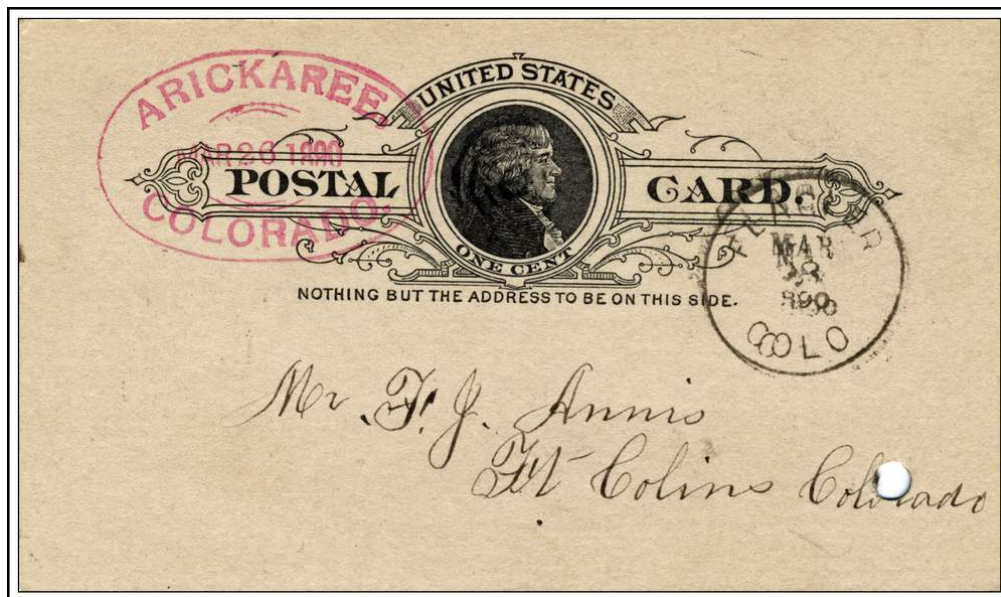 ARICKAREE,
MAR 26 1890
COLORADO.
UNITED STATES
POSTAL CARD.
ONE CENT
NOTHING BUT THE ADDRESS TO BE ON THIS SIDE.
FLAGLER
MAR
28
1890
COLO
Mr. F. J. Annis
Ft Colins Colorado